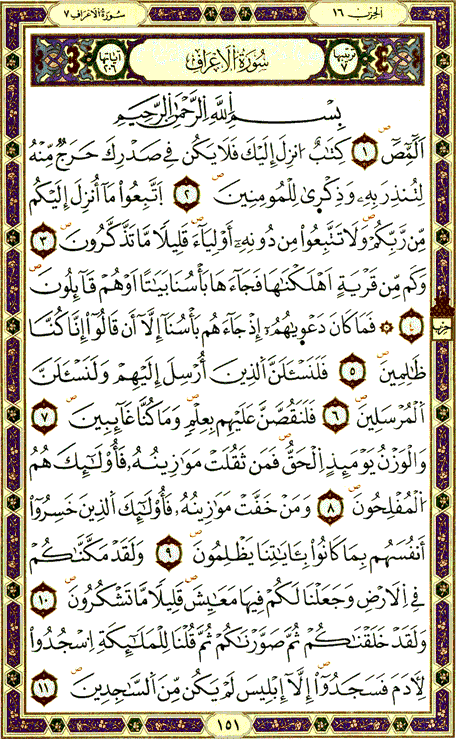 الحزب ١٦
سُورَةُ الَاعْرَافِ ٧
ترتيبها ٧
سُورَةُ الَاعْرَافِ
آياتها ٢٠٦
بِسْمِ اللَّهِ الرَّحْمَٰنِ الرَّحِيمِ
أَلَٓمِّٓصَٓ ١ كِتَٰبٌ اُنزِلَ إِلَيْكَ فَلَا يَكُن فِي صَدْرِكَ حَرَجٌ مِّنْهُ
لِتُنذِرَ بِهِۦ وَذِكْرَىٰ لِلْمُومِنِينَ ٢ اَتَّبِعُوا مَا أُنزِلَ إِلَيْكُم
مِّن رَّبِّكُمْ وَلَا تَتَّبِعُوا مِن دُونِهِۦٓ أَوْلِيَآءَ قَلِيلًا مَّا تَذَّكَّرُونَ ٣
وَكَم مِّن قَرْيَةٍ اَهْلَكْنَٰهَا فَجَآءَهَا بَأْسُنَا بَيَٰتًا اَوْ هُمْ قَآئِلُونَ
٤ فَمَا كَانَ دَعْوَىٰهُمُۥٓ إِذْ جَآءَهُم بَأْسُنَآ إِلَّآ أَن قَالُوٓا إِنَّا كُنَّا
ظَٰلِمِينَ ٥ فَلَنَسْـَٔلَنَّ الَّذِينَ أُرْسِلَ إِلَيْهِمْ وَلَنَسْـَٔلَنَّ
اَلْمُرْسَلِينَ ٦ فَلَنَقُصَّنَّ عَلَيْهِم بِعِلْمٍ وَمَا كُنَّا غَآئِبِينَ ٧
وَالْوَزْنُ يَوْمَئِذٍ اِلْحَقُّ فَمَن ثَقُلَتْ مَوَٰزِينُهُۥ فَأُوْلَٰٓئِكَ هُمُ
اُلْمُفْلِحُونَ ٨ وَمَنْ خَفَّتْ مَوَٰزِينُهُۥ فَأُوْلَٰٓئِكَ الَّذِينَ خَسِرُوٓا
أَنفُسَهُم بِمَا كَانُوا بِـَٔايَٰتِنَا يَظْلِمُونَ ٩ وَلَقَدْ مَكَّنَّٰكُمْ
فِي الَارْضِ وَجَعَلْنَا لَكُمْ فِيهَا مَعَٰيِشَ قَلِيلًا مَّا تَشْكُرُونَ ١٠
وَلَقَدْ خَلَقْنَٰكُمْ ثُمَّ صَوَّرْنَٰكُمْ ثُمَّ قُلْنَا لِلْمَلَٰٓئِكَةِ اِسْجُدُوا
لِأَدَمَ فَسَجَدُوٓا إِلَّآ إِبْلِيسَ لَمْ يَكُن مِّنَ السَّٰجِدِينَ ١١
حزب
١٥١